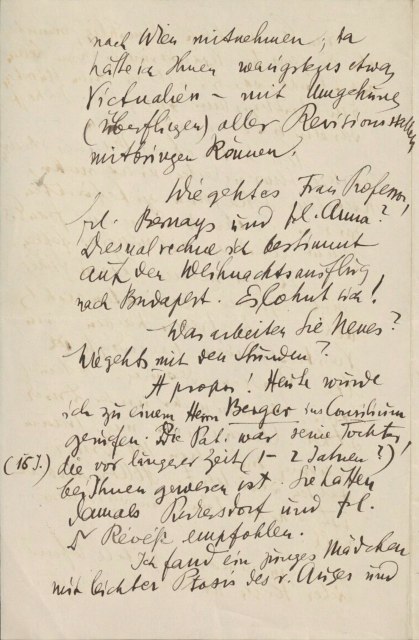 nach Wien mitnehmen; da
hätte ich Ihnen wenigstens etwas
Victualien – mit Umgehung
(überfliegen) aller Revisionsstellen
mitbringen können.
Wie geht es Frau Professor,
frl. Bernays und frl. Anna?
Diesmal rechne ich bestimmt
auf den Weihnachtsausflug
nach Budapest. Es lohnt sich!
Was arbeiten Sie Neues?
Wie gehts mit den Stunden?
A propos! Heute wurde
ich zu einem Herrn Berger ins Consilium
gerufen. Die Pat. war seine Tochter,
(15 J.) die vor längerer Zeit (1–2 Jahren?)
bei Ihnen gewesen ist. Sie hätten
damals Rekersdorf und frl.
Dr Révész empfohlen.
Ich fand ein junges Mädchen
mit leichter Ptosis des r. Auges und